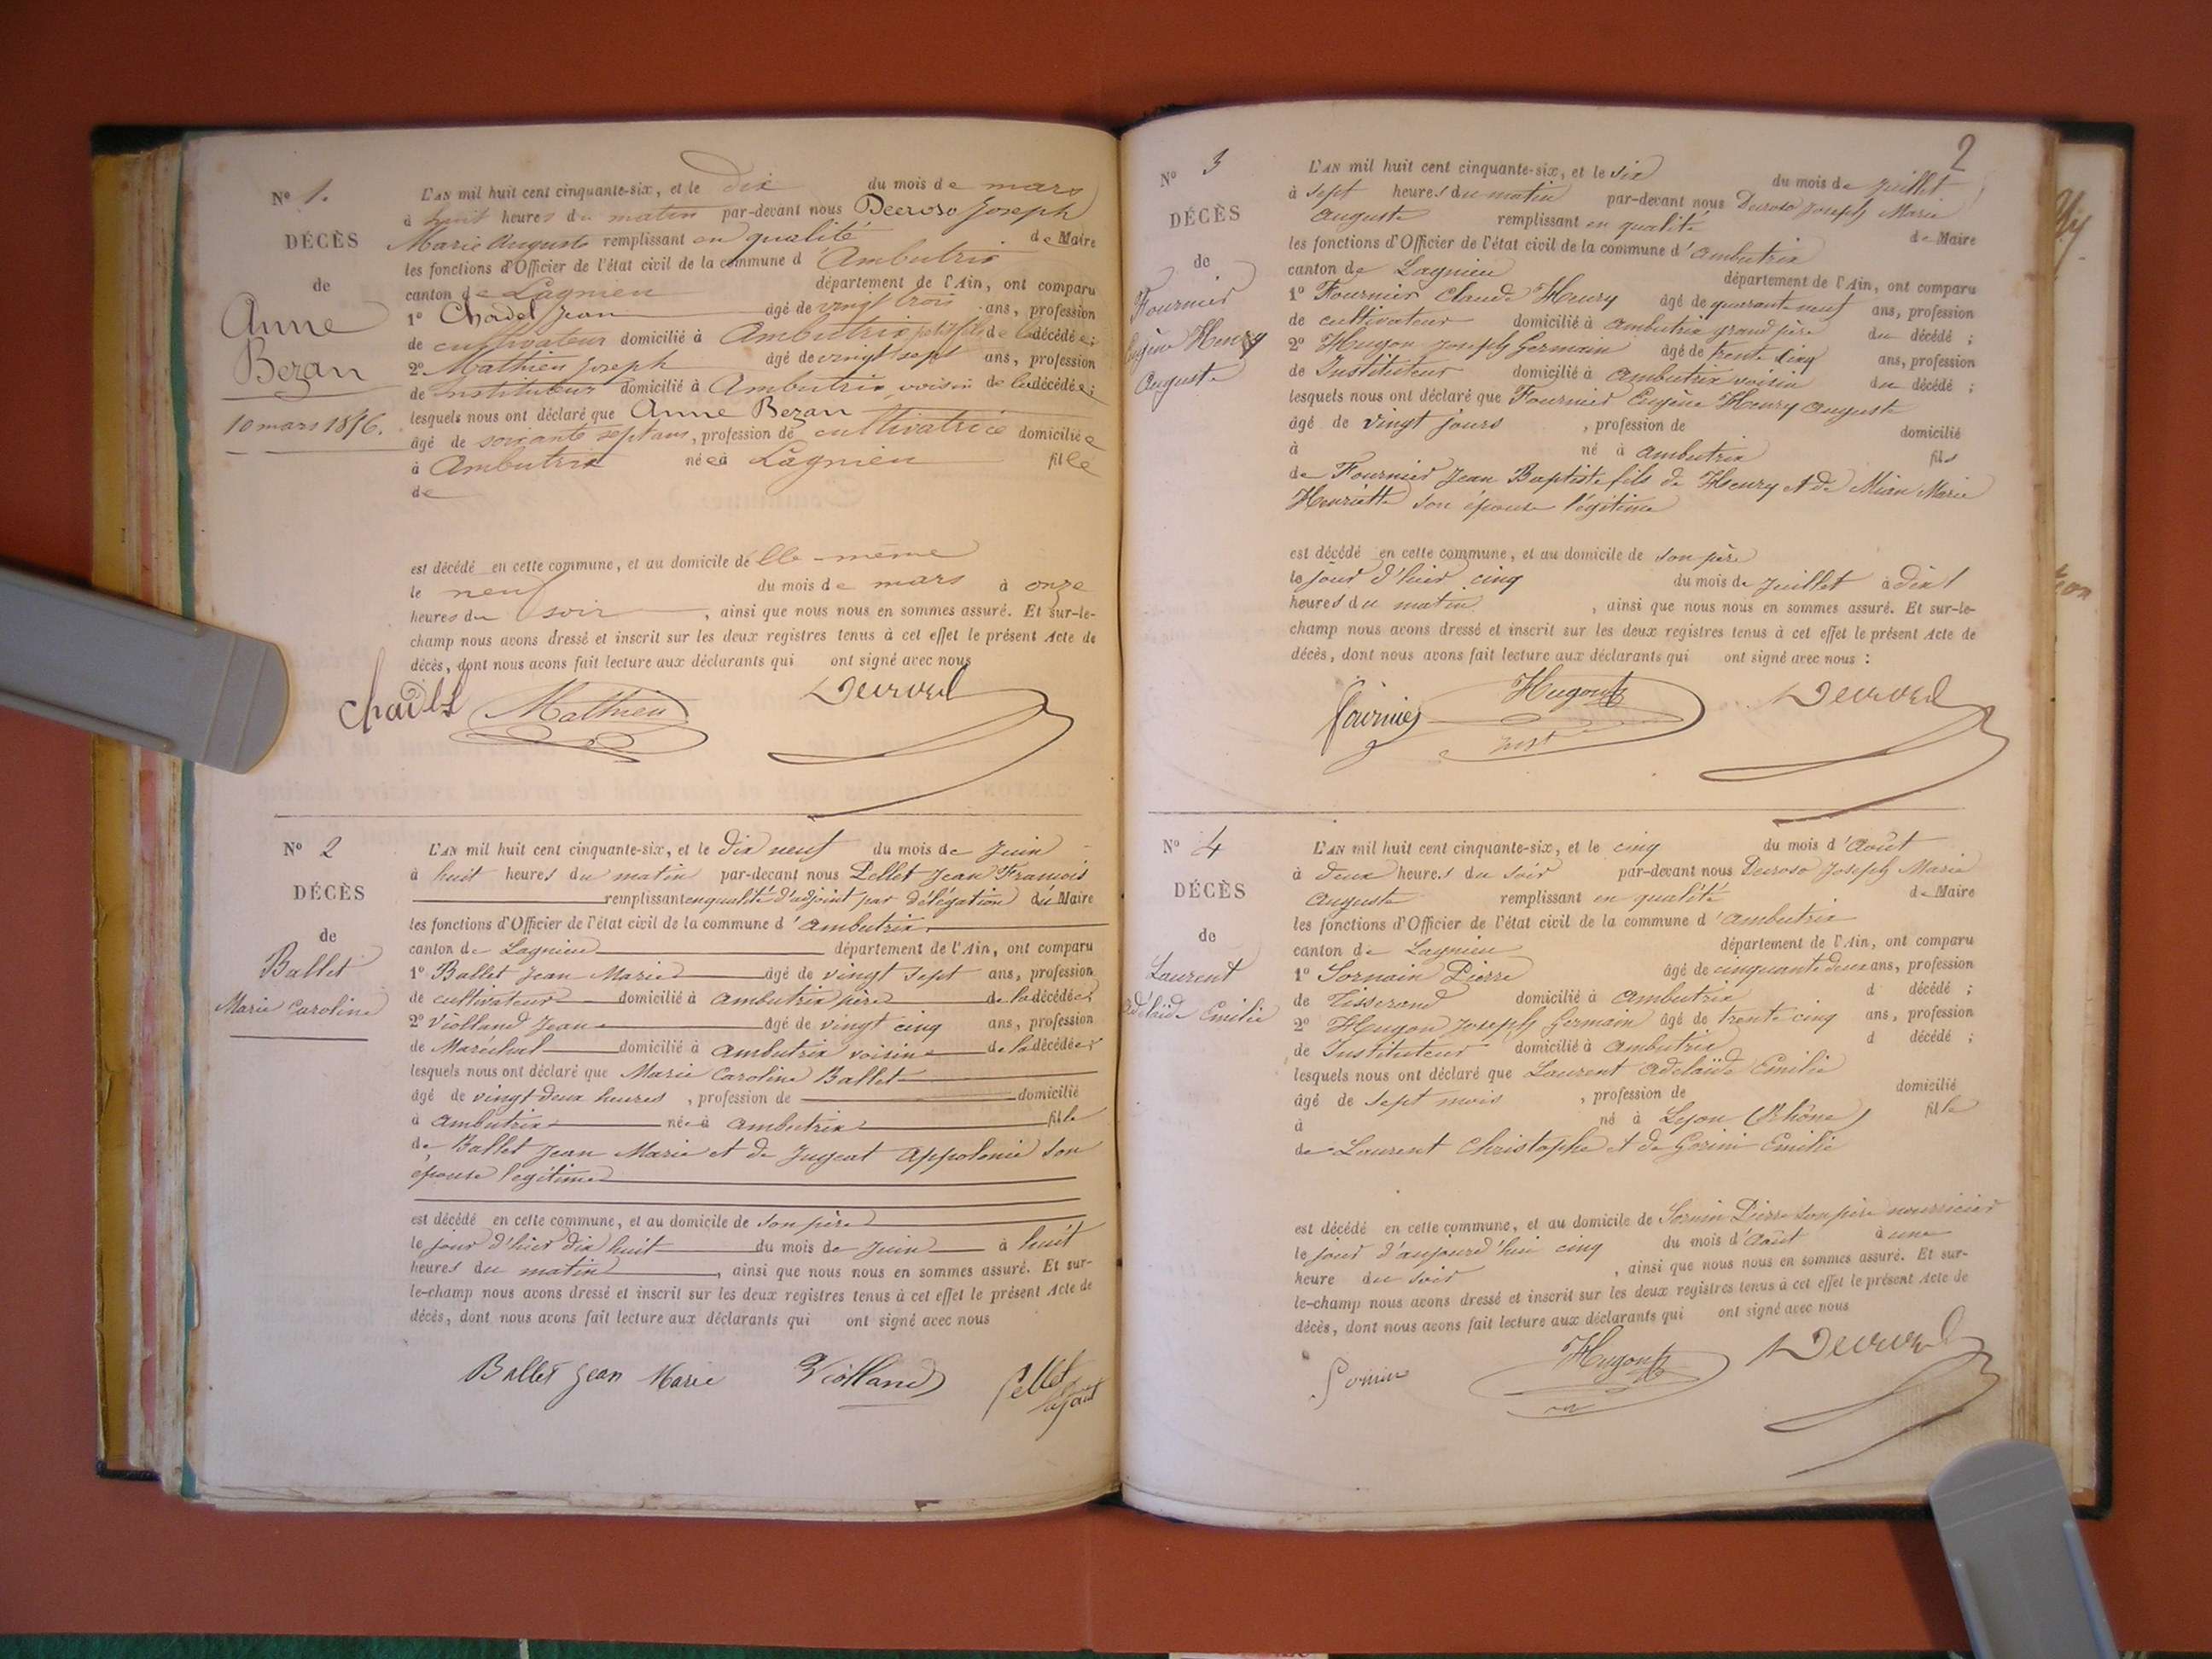 Nº 1.
DÉCÈS
de
Anne
Bezan
10 mars 1856.
L'AN mil huit cent cinquante-six, et le dix du mois de mars
à huit heures du matin par-devant nous Decroso Joseph
Marie Auguste remplissant en qualité de Maire
les fonctions d'Officier de l'état civil de la commune d'Ambutrix
canton de Lagnieu département de l'Ain, ont comparu
1º Chadel Jean âgé de vingt trois ans, profession
de cultivateur domicilié à Ambutrix petit fils de la décédée;
2º Mathieu Joseph âgé de vingt sept ans, profession
de Instituteur domicilié à Ambutrix, voisin de la décédée;
lesquels nous ont déclaré que Anne Bezan
âgé de soixante sept ans, profession de cultivatrice domiciliée
à Ambutrix née à Lagnieu fille
de
est décédé en cette commune, et au domicile de elle-même
le neuf du mois de mars à onze
heures du soir, ainsi que nous nous en sommes assuré. Et sur-le-
champ nous avons dressé et inscrit sur les deux registres tenus à cet effet le présent Acte de
décès, dont nous avons fait lecture aux déclarants qui ont signé avec nous
Chadel Mathieu
Nº 2
DÉCÈS
de
Ballet
Marie Caroline
L'AN mil huit cent cinquante-six, et le dix neuf du mois de Juin
à huit heures du matin par-devant nous Pellet Jean François
remplissant en qualité d'adjoint par délégation du Maire
les fonctions d'Officier de l'état civil de la commune d'Ambutrix
canton de Lagnieu département de l'Ain, ont comparu
1º Ballet Jean Marie âgé de vingt sept ans, profession
de cultivateur domicilié à Ambutrix père de la décédée;
2º Violland Jean âgé de vingt cinq ans, profession
de Maréchal domicilié à Ambutrix voisin de la décédée;
lesquels nous ont déclaré que Marie Caroline Ballet
âgé de vingt deux heures, profession de domicilié
à Ambutrix née à Ambutrix fille
de Ballet Jean Marie et de Jugeat Appolonie son
épouse légitime
est décédé en cette commune, et au domicile de son père
le jour d'hier dix huit du mois de Juin à huit
heures du matin, ainsi que nous nous en sommes assuré. Et sur-
le-champ nous avons dressé et inscrit sur les deux registres tenus à cet effet le présent Acte de
décès, dont nous avons fait lecture aux déclarants qui ont signé avec nous
Ballet Jean Marie Violland Pellet
2
Nº 3
DÉCÈS
de
Fournier
Eugène Henry
Auguste
L'AN mil huit cent cinquante-six, et le six du mois de Juillet
à sept heures du matin par-devant nous Decroso Joseph Marie
Auguste remplissant en qualité de Maire
les fonctions d'Officier de l'état civil de la commune d'Ambutrix
canton de Lagnieu département de l'Ain, ont comparu
1º Fournier Claude Henry âgé de quarante neuf ans, profession
de cultivateur domicilié à Ambutrix grand père du décédé;
2º Hugon Joseph Germain âgé de trente cinq ans, profession
de Instituteur domicilié à Ambutrix voisin du décédé;
lesquels nous ont déclaré que Fournier Eugène Henry Auguste
âgé de vingt jours, profession de domicilié
à né à Ambutrix fils
de Fournier Jean Baptiste fils de Henry et de Mian Marie
Henriette son épouse légitime
est décédé en cette commune, et au domicile de son père
le jour d'hier cinq du mois de Juillet à dix
heures du matin, ainsi que nous nous en sommes assuré. Et sur-le-
champ nous avons dressé et inscrit sur les deux registres tenus à cet effet le présent Acte de
décès, dont nous avons fait lecture aux déclarants qui ont signé avec nous :
fournier Hugon
Nº 4
DÉCÈS
de
Laurent
Adélaïde Emilie
L'AN mil huit cent cinquante-six, et le cinq du mois d'Août
à deux heures du soir par-devant nous Decroso Joseph Marie
Auguste remplissant en qualité de Maire
les fonctions d'Officier de l'état civil de la commune d'Ambutrix
canton de Lagnieu département de l'Ain, ont comparu
1º Sornain Pierre âgé de cinquante deux ans, profession
de Tisserand domicilié à Ambutrix d décédé ;
2º Hugon Joseph Germain âgé de trente cinq ans, profession
de Instituteur domicilié à Ambutrix d décédé ;
lesquels nous ont déclaré que Laurent Adélaïde Emilie
âgé de sept mois, profession de domicilié
à né à Lyon (Rhône) fille
de Laurent Christophe et de Gorini Emilie
est décédé en cette commune, et au domicile de Sornin Pierre son père nourricier
le jour d'aujourd'hui cinq du mois d'Août à une
heure du soir, ainsi que nous nous en sommes assuré. Et sur-
le-champ nous avons dressé et inscrit sur les deux registres tenus à cet effet le présent Acte de
décès, dont nous avons fait lecture aux déclarants qui ont signé avec nous
Hugon